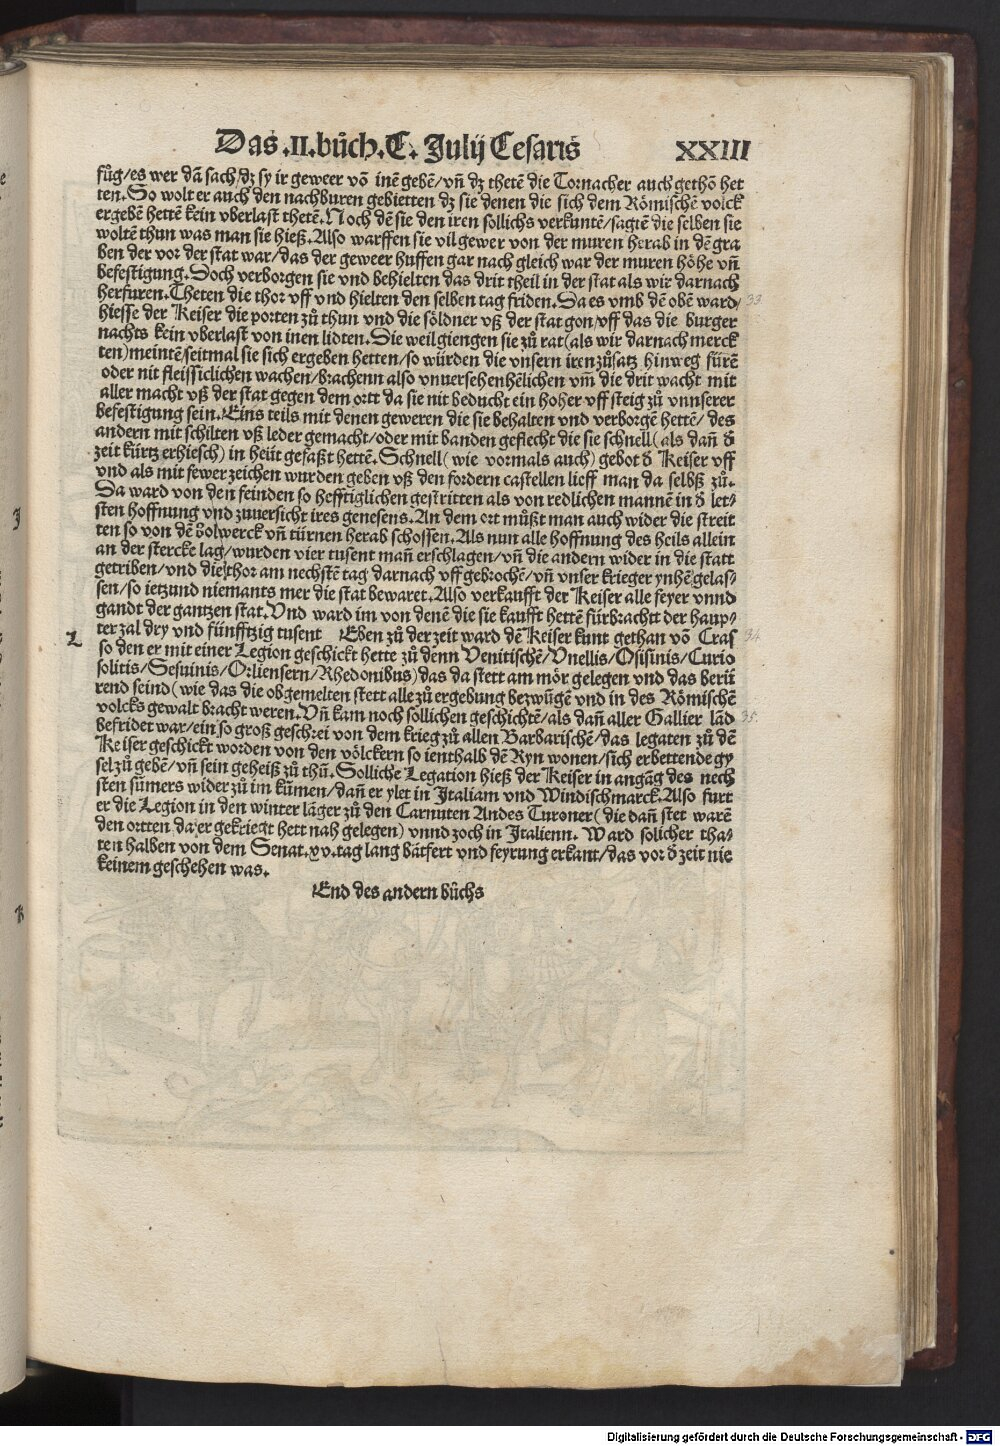 Das .II. bůch. C. Julij Cesaris XXIII
fůg/es wer dā sach/dz sy ir geweer vō inē gebē/vn̄ dz thetē die Tornacher auch gethō het
ten. So wolt er auch den nachburen gebietten dz sie denen die sich dem Römischē volck
ergebē hettē kein vberlast thetē. Noch dē sie den iren sollichs verkuntē/sagtē die selben sie
woltē thun was man sie hieß. Also warffen sie vil gewer von der muren herab in dē gra
ben der vor der stat war/das der geweer huffen gar nach gleich war der muren höhe vn̄
befestigung. Doch verborgen sie vnd behielten das drit theil in der stat als wir darnach
herfuren. Theten die thor vff vnd hielten den selben tag friden. Da es vmb dē obē ward/ 33
hiesse der Keiser die porten zů thun vnd die söldner vß der stat gon/vff das die burger
nachts kein vberlast von inen lidten. Die weil giengen sie zů rat (als wir darnach merck
ten) meintē/seitmal sie sich ergeben hetten/so würden die vnsern iren zůsatz hinweg fürē
oder nit fleissiclichen wachen/brachenn also vnuersehenhēlichen vm̄ die drit wacht mit
aller macht vß der stat gegen dem ortt da sie nit beducht ein hoher vff steig zů vnnserer
befestigung sein. Eins teils mit denen geweren die sie behalten vnd verborgē hettē/des
andern mit schilten vß leder gemacht/oder mit banden geflecht die sie schnell (als dan̄ d̄
zeit kürtz erhiesch) in heüt gefaßt hettē. Schnell (wie vormals auch) gebot d̄ Keiser vff
vnd als mit fewer zeichen wurden geben vß den fordern castellen lieff man da selbß zů.
Da ward von den feinden so hefftiglichen gestritten als von redlichen mannē in d̄ let⸗
sten hoffnung vnd zuuersicht ires genesens. An dem ort můßt man auch wider die streit
ten so von dē bolwerck vn̄ türnen herab schossen. Als nun alle hoffnung des heils allein
an der stercke lag/wurden vier tusent man̄ erschlagen/vn̄ die andern wider in die statt
getriben/vnd die thor am nechstē tag darnach vff gebrochē/vn̄ vnser krieger ynhē gelas⸗
sen/so ietzund niemants mer die stat bewaret. Also verkaufft der Keiser alle feyer vnnd
gandt der gantzen stat. Vnd ward im von denē die sie kaufft hettē fürbrachtt der haup⸗
L ter zal dry vnd fünfftzig tusent Eben zů der zeit ward dē Keiser kunt gethan vō Cras 34
so den er mit einer Legion geschickt hette zů denn Venitischē/Vnellis/Osisinis/Curio
solitis/Sesuinis/Orliensern/Rhedonibus) das da stett am mör gelegen vnd das berü
rend seind (wie das die obgemelten stett alle zů ergebung bezwūgē vnd in des Römischē
volcks gewalt bracht weren. Vn̄ kam noch sollichen geschichtē/als dan̄ aller Gallier lād 35.
befridet war/ein so groß geschrei von dem krieg zů allen Barbarischē/das legaten zů dē
Keiser geschickt worden von den völckern so ienthalb dē Ryn wonen/sich erbettende gy
sel zů gebē/vn̄ sein geheiß zů thū. Solliche Legation hieß der Keiser in angāg des nech
sten sūmers wider zů im kūmen/dan̄ er ylet in Italiam vnd Windischmarck. Also furt
er die Legion in den winter läger zů den Carnuten Andes Turoner (die dan̄ stet warē
den ortten da er gekriegt hett nah gelegen) vnnd zoch in Italienn. Ward solicher tha⸗
ten halben von dem Senat .xv. tag lang bätfert vnd feyrung erkant/das vor d̄ zeit nie
keinem geschehen was.
End des andern bůchs
Digitalisierung gefördert durch die Deutsche Forschungsgemeinschaft - DFG